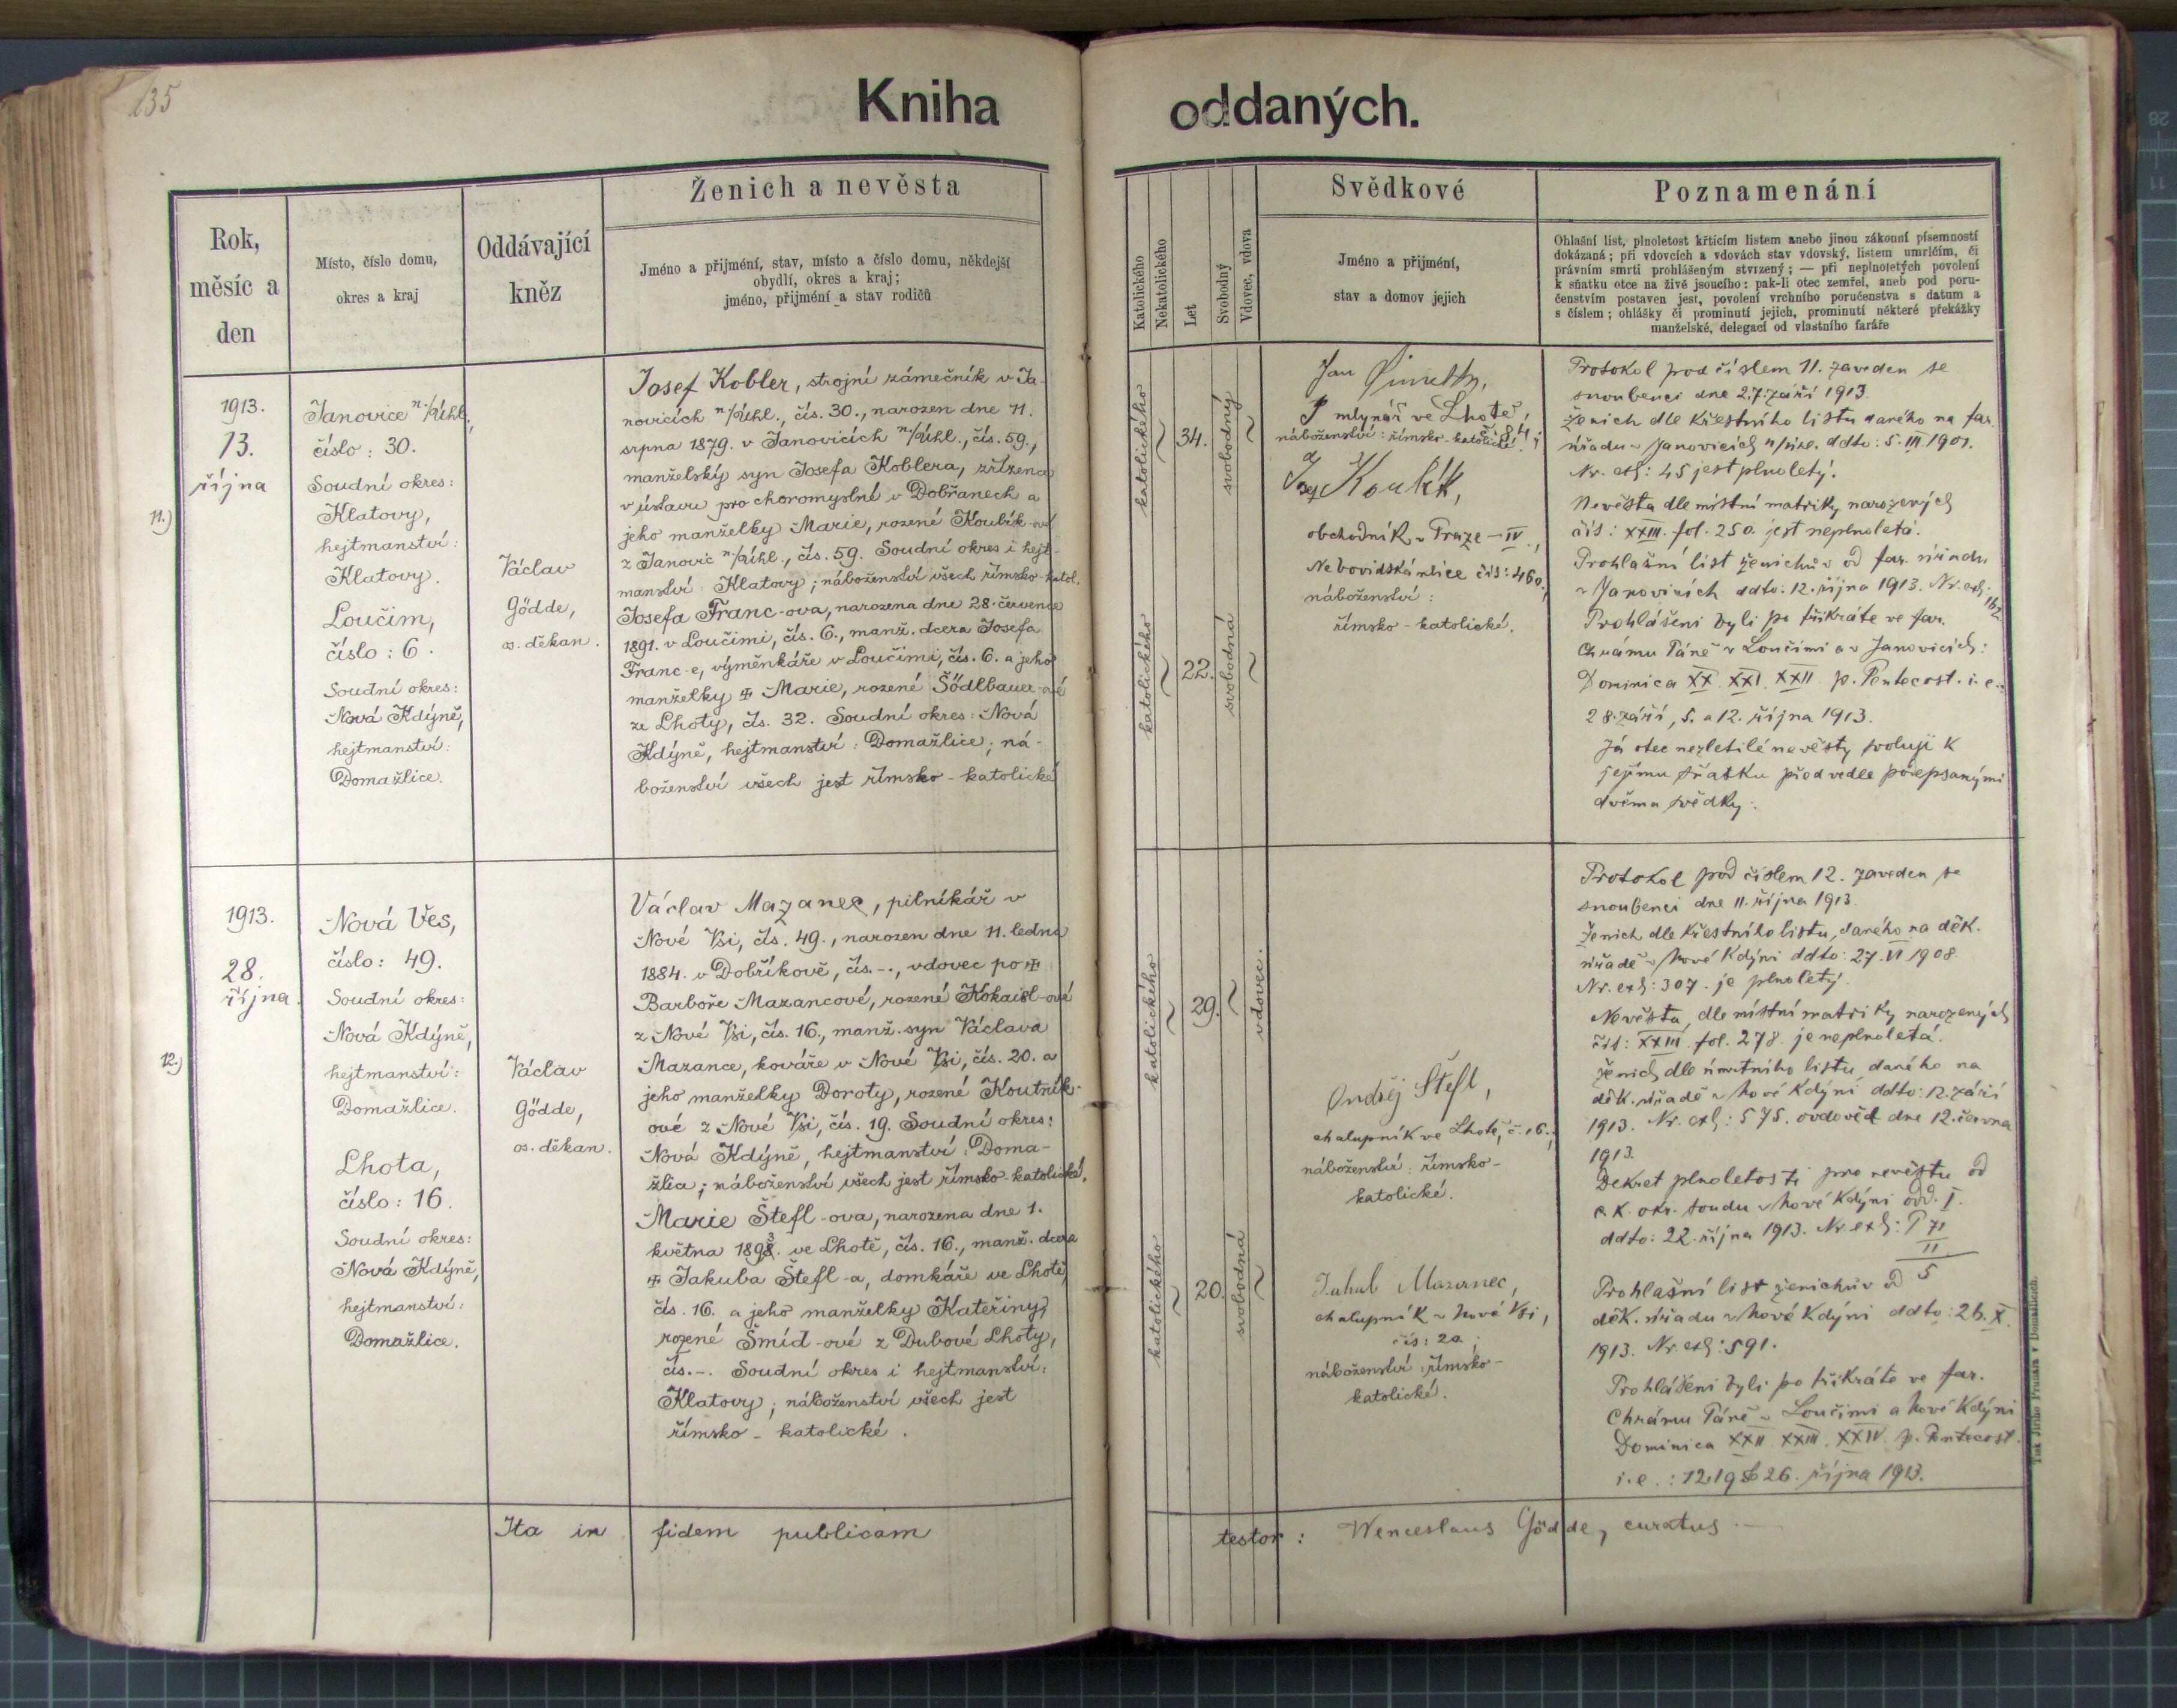 135
Kniha oddaných.
Rok,
měsíc a
den
Místo, číslo domu,
okres a kraj
Oddávající
kněz
Ženich a nevěsta
Jméno a přijmení, stav, místo a číslo domu, někdejší
obydlí, okres a kraj;
jméno, přijmení a stav rodičů
Katolického
Nekatolického
Let
Svobodný
Vdovec, vdova
Svědkové
Jméno a přijmení,
stav a domov jejich
Poznamenání
Ohlašní list, plnoletost křticím listem anebo jinou zákonní písemností
dokázaná; při vdovcích a vdovách stav vdovský, listem umrlčím, či
právním smrti prohlášeným stvrzený; — při neplnoletých povolení
k sňatku otce na živě jsoucího: pak-li otec zemřel, aneb pod poru-
čenstvím postaven jest, povolení vrchního poručenstva s datum a
s číslem; ohlášky či prominutí jejich, prominutí některé překážky
manželské, delegací od vlastního faráře
11.)
1913.
13.
října
Janovice n./Úhl.,
číslo: 30.
Soudní okres:
Klatovy,
hejtmanství:
Klatovy.
Loučim,
číslo: 6.
Soudní okres:
Nová Kdýně,
hejtmanství:
Domažlice.
Václav
Gödde,
os. děkan.
Josef Kobler, strojní zámečník v Ja-
novicích n/Úhl., čís. 30., narozen dne 11.
srpna 1879. v Janovicích n/Úhl., čís. 59.,
manželský syn Josefa Koblera, zřízence
v ústavu pro choromyslné v Dobřanech a
jeho manželky Marie, rozené Koubík-ové
z Janovic n./Úhl., čís. 59. Soudní okres i hejt-
manství: Klatovy; náboženství všech římsko-katol.
Josefa Franc-ova, narozena dne 28. července
1891. v Loučimi, čís. 6., manž. dcera Josefa
Franc-e, výměnkáře v Loučimi, čís. 6. a jeho
manželky ✠ Marie, rozené Södlbauer-ové
ze Lhoty, čís. 32. Soudní okres: Nová
Kdýně, hejtmanství: Domažlice; ná-
boženství všech jest římsko-katolické
katolického
34.
svobodný
katolického
22.
svobodná
Jan
mlynář ve Lhotě,
náboženství: římsko-katolické.
a
Jos. Koubík,
obchodník v Praze – IV.,
Nebovidská ulice čís: 460.,
náboženství:
římsko-katolické.
Protokol pod číslem 11. zaveden se
snoubenci dne 27. září 1913.
Ženich dle křestního listu daného na far.
úřadu v Janovicích n/Úhl. ddto: 5. III. 1901.
Nr. exh: 45 jest plnoletý.
Nevěsta dle místní matriky narozených
čís: XXIII. fol. 250. jest neplnoletá.
Prohlašní list ženichův od far. úřadu
v Janovicích ddto: 12. října 1913. Nr. exh: 162.
Prohlášeni byli po třikráte ve far.
chrámu Páně v Loučimi a v Janovicích:
Dominica XX. XXI. XXII. p. Pentecost. i. e.:
28. září, 5. a 12. října 1913.
Já otec nezletilé nevěsty svoluji k
jejímu sňatku před vedle podepsanými
dvěma svědky:
12.)
1913.
28.
října.
Nová Ves,
číslo: 49.
Soudní okres:
Nová Kdýně,
hejtmanství:
Domažlice.
Lhota,
číslo: 16.
Soudní okres:
Nová Kdýně,
hejtmanství:
Domažlice.
Václav
Gödde,
os. děkan.
Václav Mazanec, pilníkář v
Nové Vsi, čís. 49., narozen dne 11. ledna
1884. v Dobříkově, čís. -., vdovec po ✠
Barboře Mazancové, rozené Kokaisl-ové
z Nové Vsi, čís. 16., manž. syn Václava
Mazance, kováře v Nové Vsi, čís. 20. a
jeho manželky Doroty, rozené Koutník-
ové z Nové Vsi, čís. 19. Soudní okres:
Nová Kdýně, hejtmanství: Doma-
žlice; náboženství všech jest římsko-katolické.
Marie Štefl-ova, narozena dne 1.
května 1893. ve Lhotě, čís. 16., manž. dcera
✠ Jakuba Štefl-a, domkáře ve Lhotě,
čís. 16. a jeho manželky Kateřiny,
rozené Šmíd-ové z Dubové Lhoty,
čís. -. Soudní okres i hejtmanství:
Klatovy; náboženství všech jest
římsko-katolické.
katolického
29.
vdovec.
katolického
20.
svobodná
Ondřej Štefl,
chalupník ve Lhotě, č. 16.,
náboženství: římsko-
katolické.
Jakub Mazanec,
chalupník v Nové Vsi,
čís: 20.
náboženství: římsko-
katolické.
Protokol pod číslem 12. zaveden se
snoubenci dne 11. října 1913.
Ženich dle křestního listu, daného na děk.
úřadě v Nové Kdýni ddto: 27. VI 1908.
Nr. exh: 307. je plnoletý.
Nevěsta, dle místní matriky narozených
čís: XXIII. fol. 278. je neplnoletá.
Ženich dle úmrtního listu, daného na
děk. úřadě v Nové Kdýni ddto: 12. září
1913. Nr. exh: 575. ovdověl dne 12. června
1913.
Dekret plnoletosti pro nevěstu od
c. k. okr. soudu v Nové Kdýni odd. I.
ddto: 22. října 1913. Nr. exh: P 71
II
5
Prohlašní list ženichův od
děk. úřadu v Nové Kdýni ddto: 26. X.
1913. Nr. exh: 591.
Prohlášeni byli po třikráte ve far.
chrámu Páně v Loučimi a Nové Kdýni
Dominica XXII. XXIII. XXIV. p. Pentecost.
i. e.: 12. 19 & 26. října 1913.
Ita in fidem publicam testor: Wenceslaus Gödde, curatus.
Tisk Jiřího Prunara v Domažlicích.